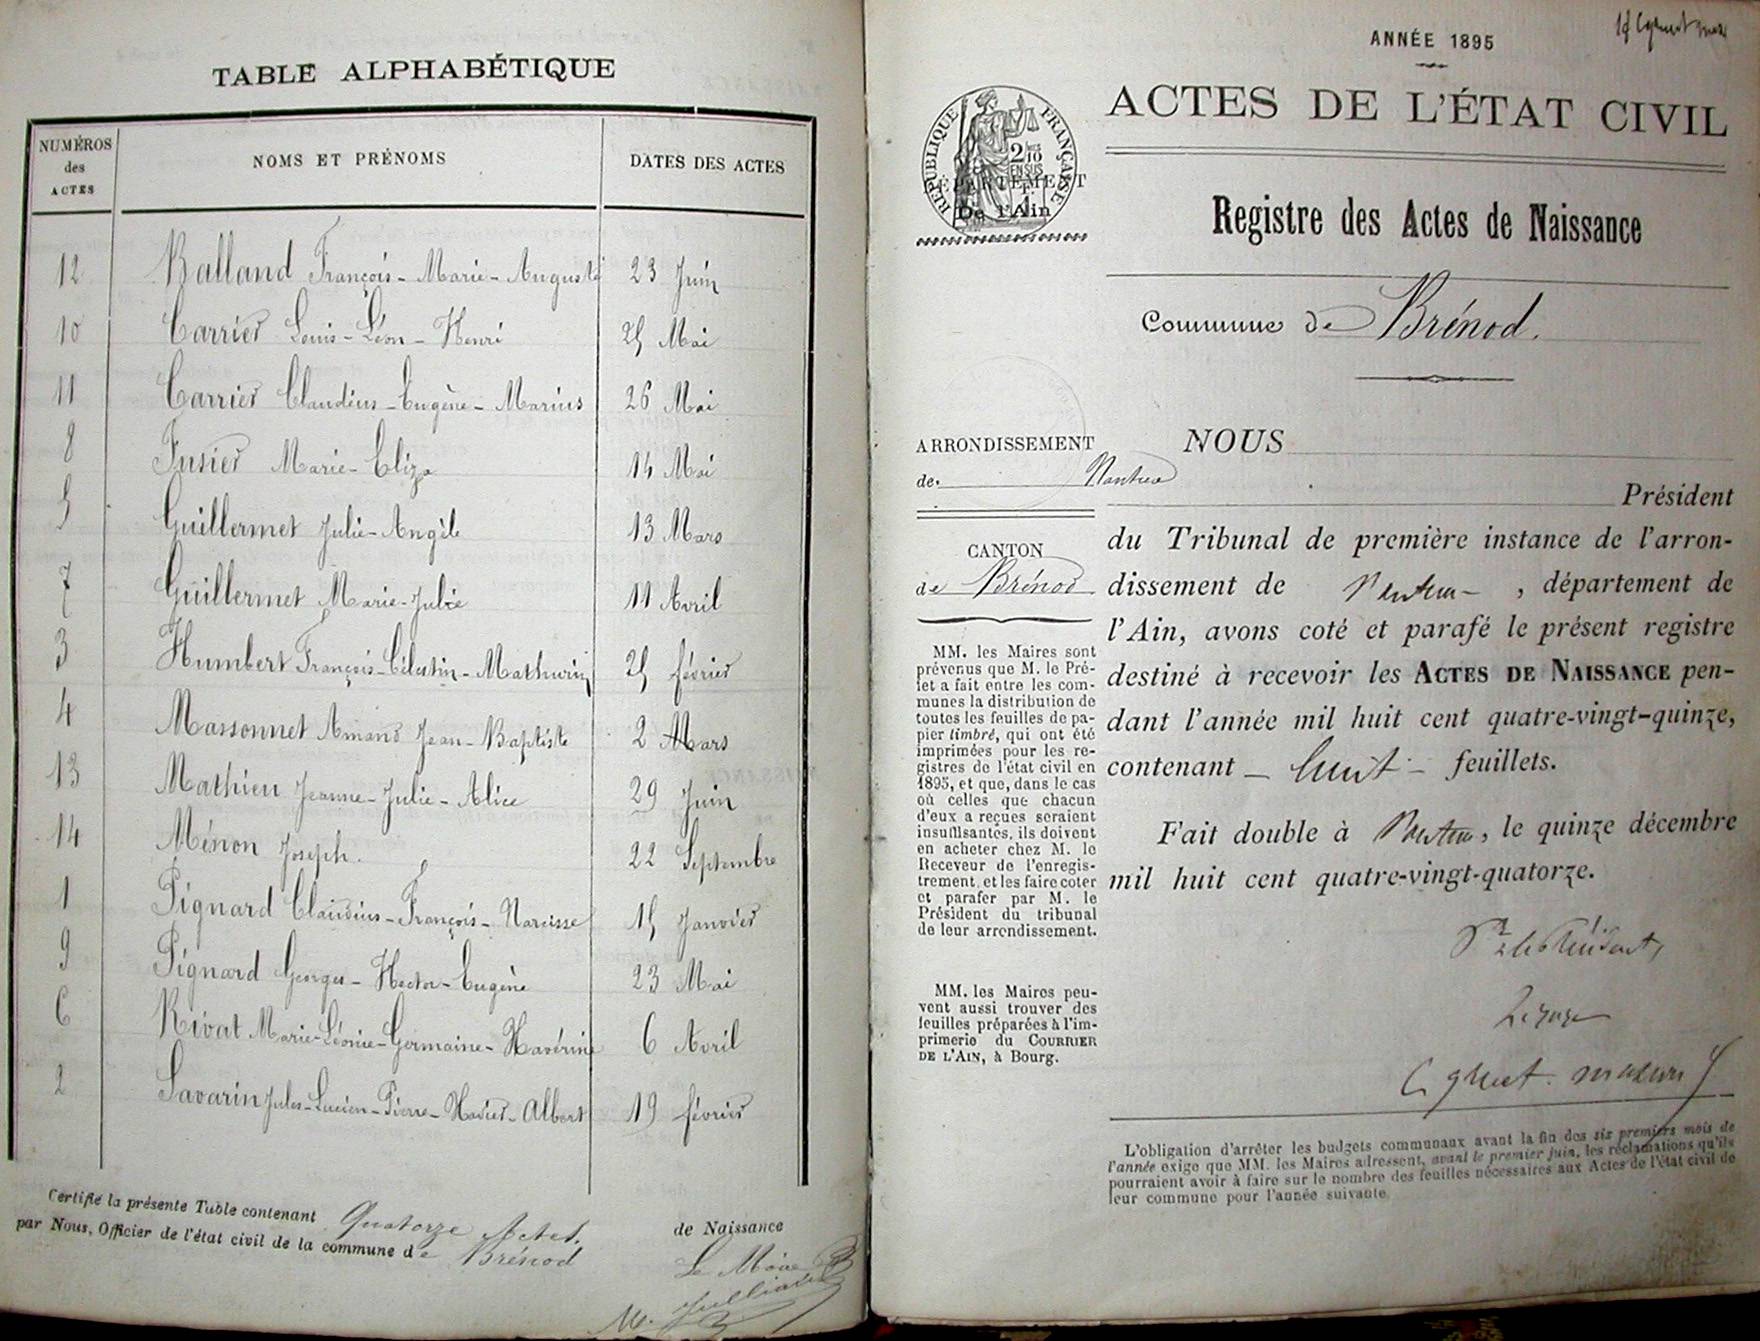 TABLE ALPHABÉTIQUE
NUMÉROS des ACTES NOMS ET PRÉNOMS DATES DES ACTES
12 Balland François-Marie-Auguste 23 Juin
10 Carrier Louis-Léon-Henri 25 Mai
11 Carrier Claudius-Eugène-Marius 26 Mai
8 Fusier Marie-Eliza 14 Mai
5 Guillermet Julie-Angèle 13 Mars
7 Guillermet Marie-Julie 11 Avril
3 Humbert François-Célestin-Mathurin 25 février
4 Massonnet Amand Jean-Baptiste 2 Mars
13 Mathieu Jeanne-Julie-Alice 29 Juin
14 Ménon Joseph. 22 Septembre
1 Pignard Claudius-François-Narcisse 15 Janvier
9 Pignard Georges-Hector-Eugène 23 Mai
6 Rivat Marie-Léonie-Germaine-Xavérine 6 Avril
2 Savarin Jules-Lucien-Pierre-Xavier-Albert 19 février
Certifié la présente Table contenant Quatorze Actes. de Naissance
par Nous, Officier de l'état civil de la commune de Brénod
Le Maire
M. Julliard
ANNÉE 1895
ACTES DE L'ÉTAT CIVIL
RÉPUBLIQUE FRANÇAISE
2/10 EN SUS
DÉPARTEMENT
De l'Ain
Registre des Actes de Naissance
Commune de Brénod.
ARRONDISSEMENT
de Nantua
CANTON
de Brénod
MM. les Maires sont
prévenus que M. le Pré-
fet a fait entre les com-
munes la distribution de
toutes les feuilles de pa-
pier timbré, qui ont été
imprimées pour les re-
gistres de l'état civil en
1895, et que, dans le cas
où celles que chacun
d'eux a reçues seraient
insuffisantes, ils doivent
en acheter chez M. le
Receveur de l'enregis-
trement, et les faire coter
et parafer par M. le
Président du tribunal
de leur arrondissement.
MM. les Maires peu-
vent aussi trouver des
feuilles préparées à l'im-
primerie du COURRIER
DE L'AIN, à Bourg.
NOUS
Président
du Tribunal de première instance de l'arron-
dissement de Nantua, département de
l'Ain, avons coté et parafé le présent registre
destiné à recevoir les ACTES DE NAISSANCE pen-
dant l'année mil huit cent quatre-vingt-quinze,
contenant - huit - feuillets.
Fait double à Nantua, le quinze décembre
mil huit cent quatre-vingt-quatorze.
Pr le Président,
Le juge
L'obligation d'arrêter les budgets communaux avant la fin des six premiers mois de
l'année exige que MM. les Maires adressent, avant le premier juin, les réclamations qu'ils
pourraient avoir à faire sur le nombre des feuilles nécessaires aux Actes de l'état civil de
leur commune pour l'année suivante